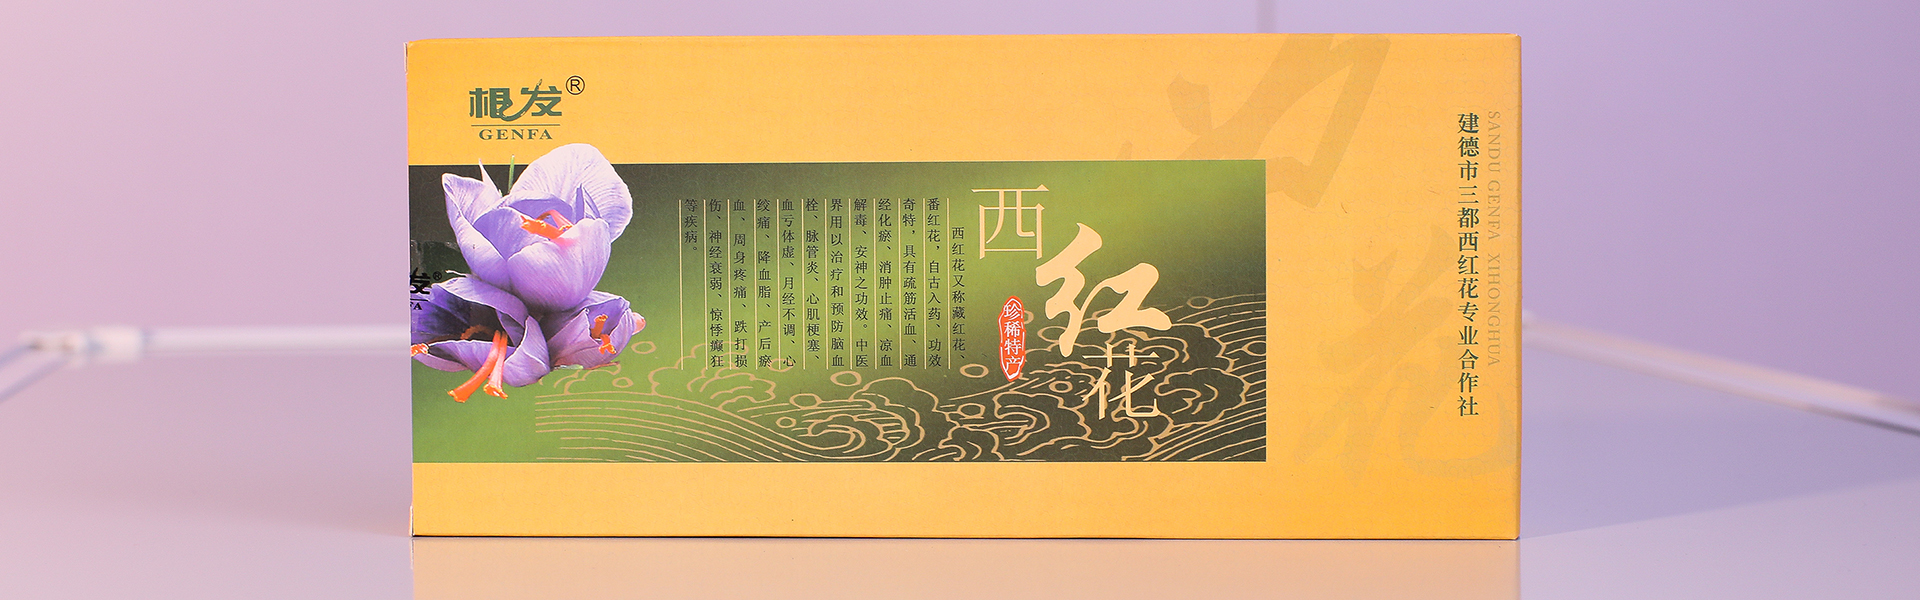 根发®
GENFA
西红花
珍稀特产
西红花又称藏红花、
番红花，自古入药、功效
奇特，具有疏筋活血、通
经化瘀、消肿止痛、凉血
解毒、安神之功效。中医
界用以治疗和预防脑血
栓、脉管炎、心肌梗塞、
血亏体虚、月经不调、心
绞痛、降血脂、产后瘀
血、周身疼痛、跌打损
伤、神经衰弱、惊悸癫狂
等疾病。
建德市三都西红花专业合作社
SANDU GENFA XIHONGHUA
发®
FA